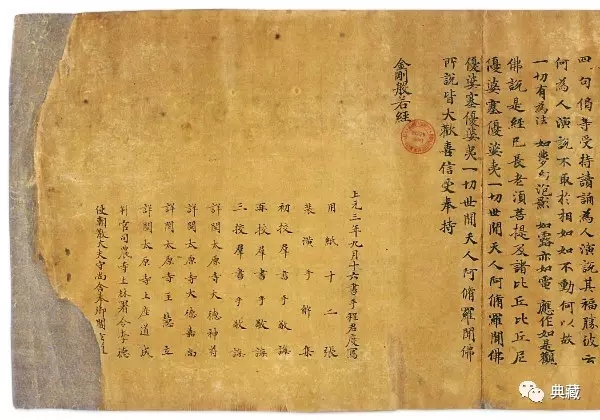 四句偈等受持讀誦為人演說其福勝彼云
何為人演說不取於相如如不動何以故
一切有為法 如夢幻泡影 如露亦如電 應作如是觀
佛說是經已長老須菩提及諸比丘比丘尼
優婆塞優婆夷一切世間天人阿脩羅聞佛
優婆塞優婆夷一切世間天人阿脩羅聞佛
所說皆大歡喜信受奉持
金剛般若經
上元三年九月十六書手程君度寫
用紙十二張
裝潢手解集
初挍羣書手敬誨
再挍羣書手敬誨
三挍羣書手敬誨
詳閱太原寺大德神符
詳閱太原寺大德嘉尚
詳閱太原寺主慧立
詳閱太原寺上座道成
判官司農寺上林署令李德
使朝散大夫守尚舍奉御閻玄道
典藏